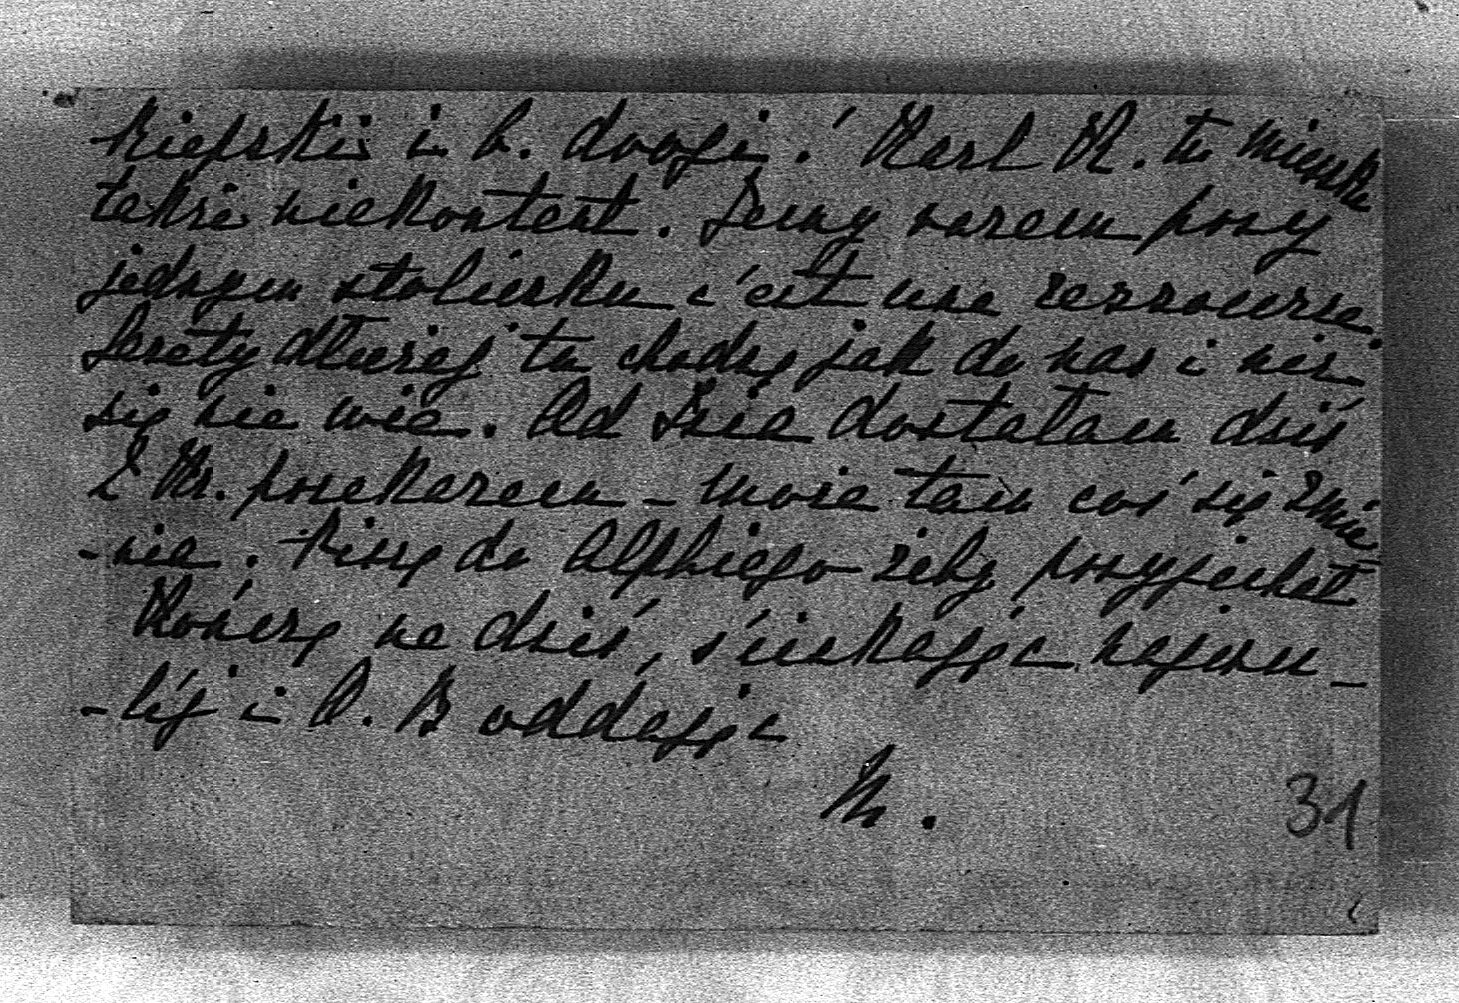 kiepski i b. drogi. Karl R. tu mieszka
także niekontent. Jemy razem przy
jednym stoliczku c'est une ressource.
Gazety dłużej tu chodzą jak do nas i nic
się nie wie. Od Izia dostałam dziś
z Kr. przekazem – może tam coś się zmie=
-nia. Piszę do Alfhiego żeby przyjechał
Kończę na dziś, ściskając najczu–
-lej i O. B oddając
M.
31